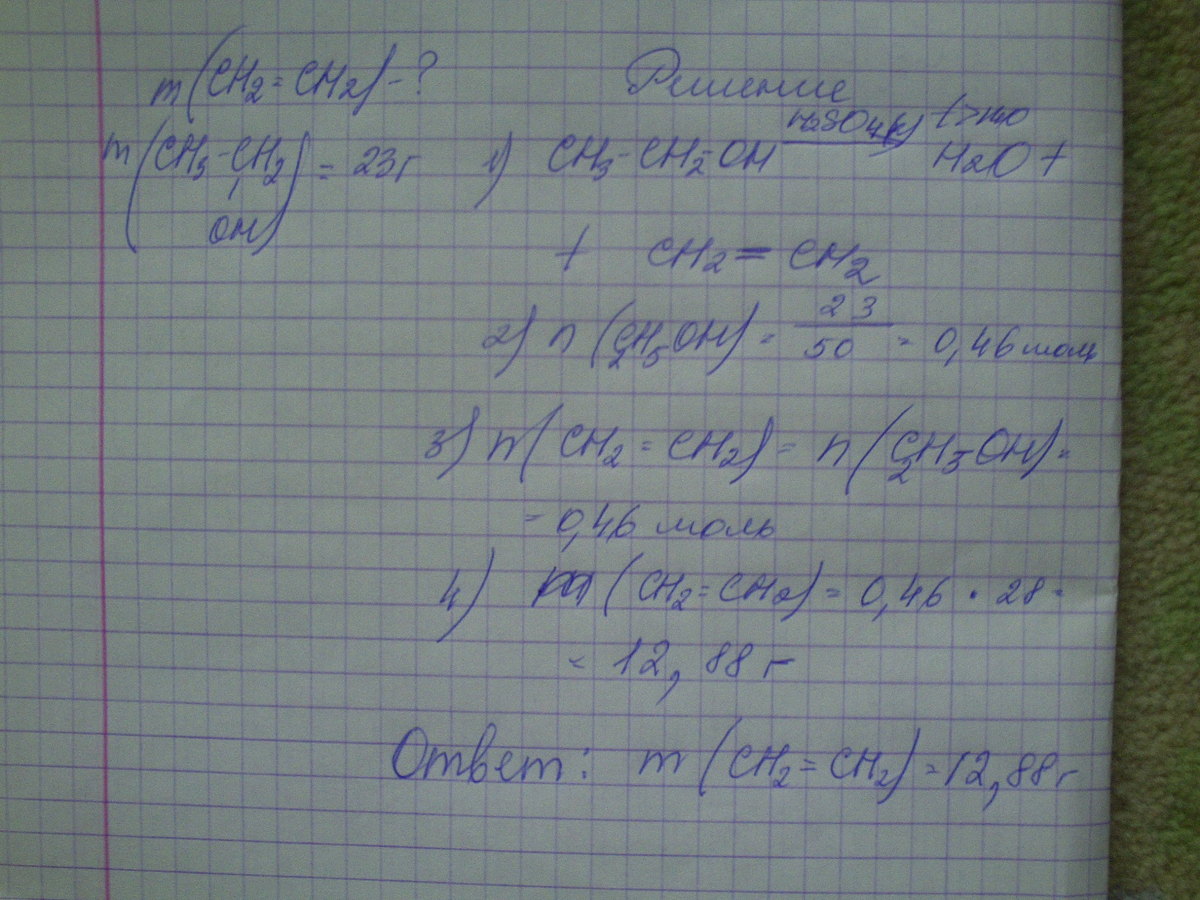 m(CH2=CH2)-?
Решение
m(CH3-CH2) = 23г
OH
1) CH3-CH2-OH H2SO4(к) t>140 H2O +
+ CH2=CH2
2) n(C2H5OH) = 23/50 = 0,46 моль
3) n(CH2=CH2) = n(C2H5OH) =
= 0,46 моль
4) m(CH2=CH2) = 0,46 · 28 =
= 12,88 г
Ответ: m(CH2=CH2) = 12,88г